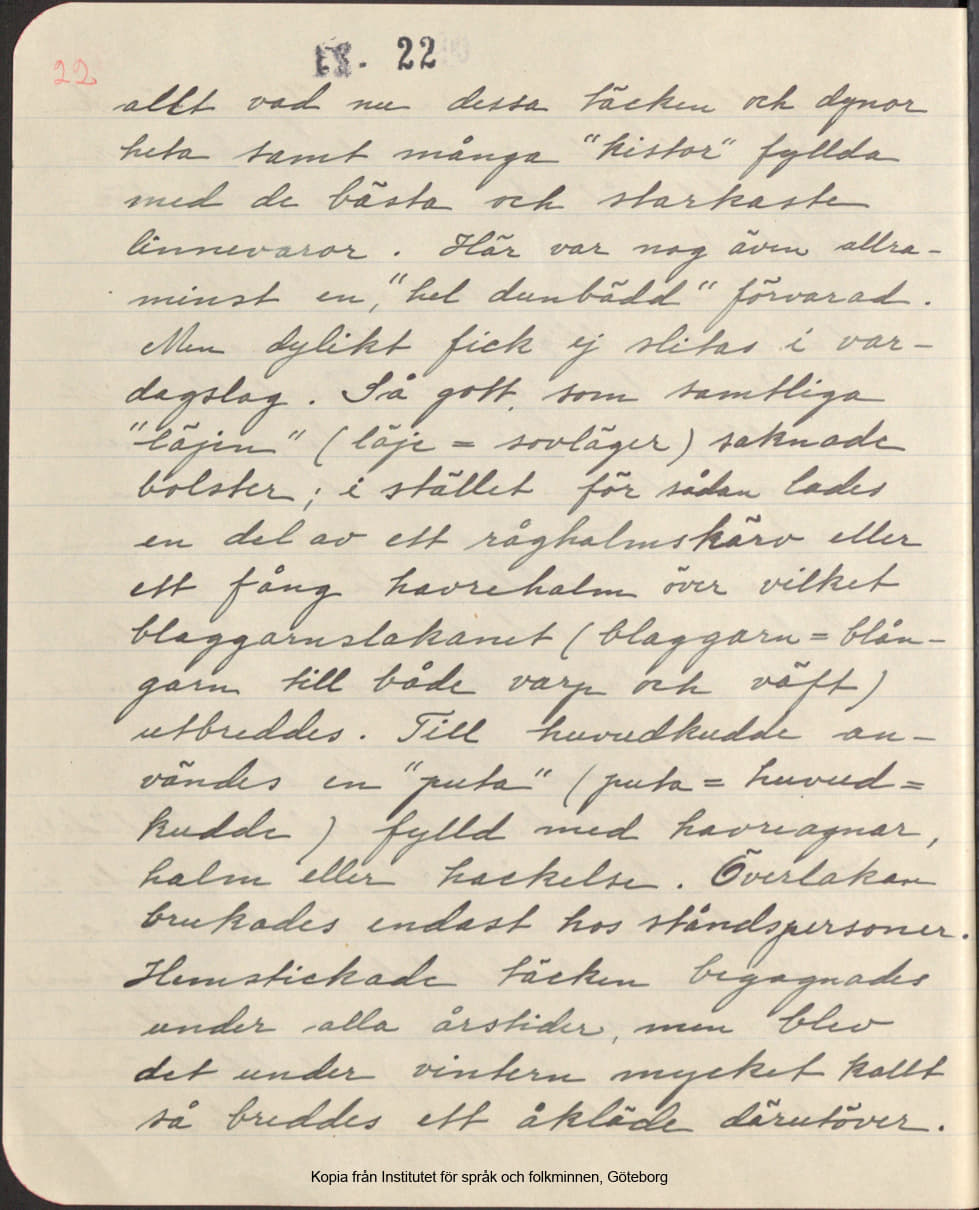 22
22
allt vad nu dessa täcken och dynor
heta samt många "kistor" fyllda
med de bästa och starkaste
linnevaror. Här var nog även allra-
minst en, "hel dunbädd" förvarad.
Men dylikt fick ej slitas i var-
dagslag. Så gott som samtliga
"läjen" (läje = sovläger) saknade
bolster; i stället för sådan lades
en del av ett råghalmskärv eller
ett fång havrehalm över vilket
blaggarnslakanet (blaggarn = blån-
garn till både varp och väft)
utbreddes. Till huvudkudde an-
vändes en "puta" (puta = huvud=
kudde) fylld med havreagnar,
halm eller hackelse. Överlakan
brukades endast hos ståndspersoner.
Hemstickade täcken begagnades
under alla årstider, men blev
det under vintern mycket kallt
så breddes ett åkläde därutöver.
Kopia från Institutet för språk och folkminnen, Göteborg